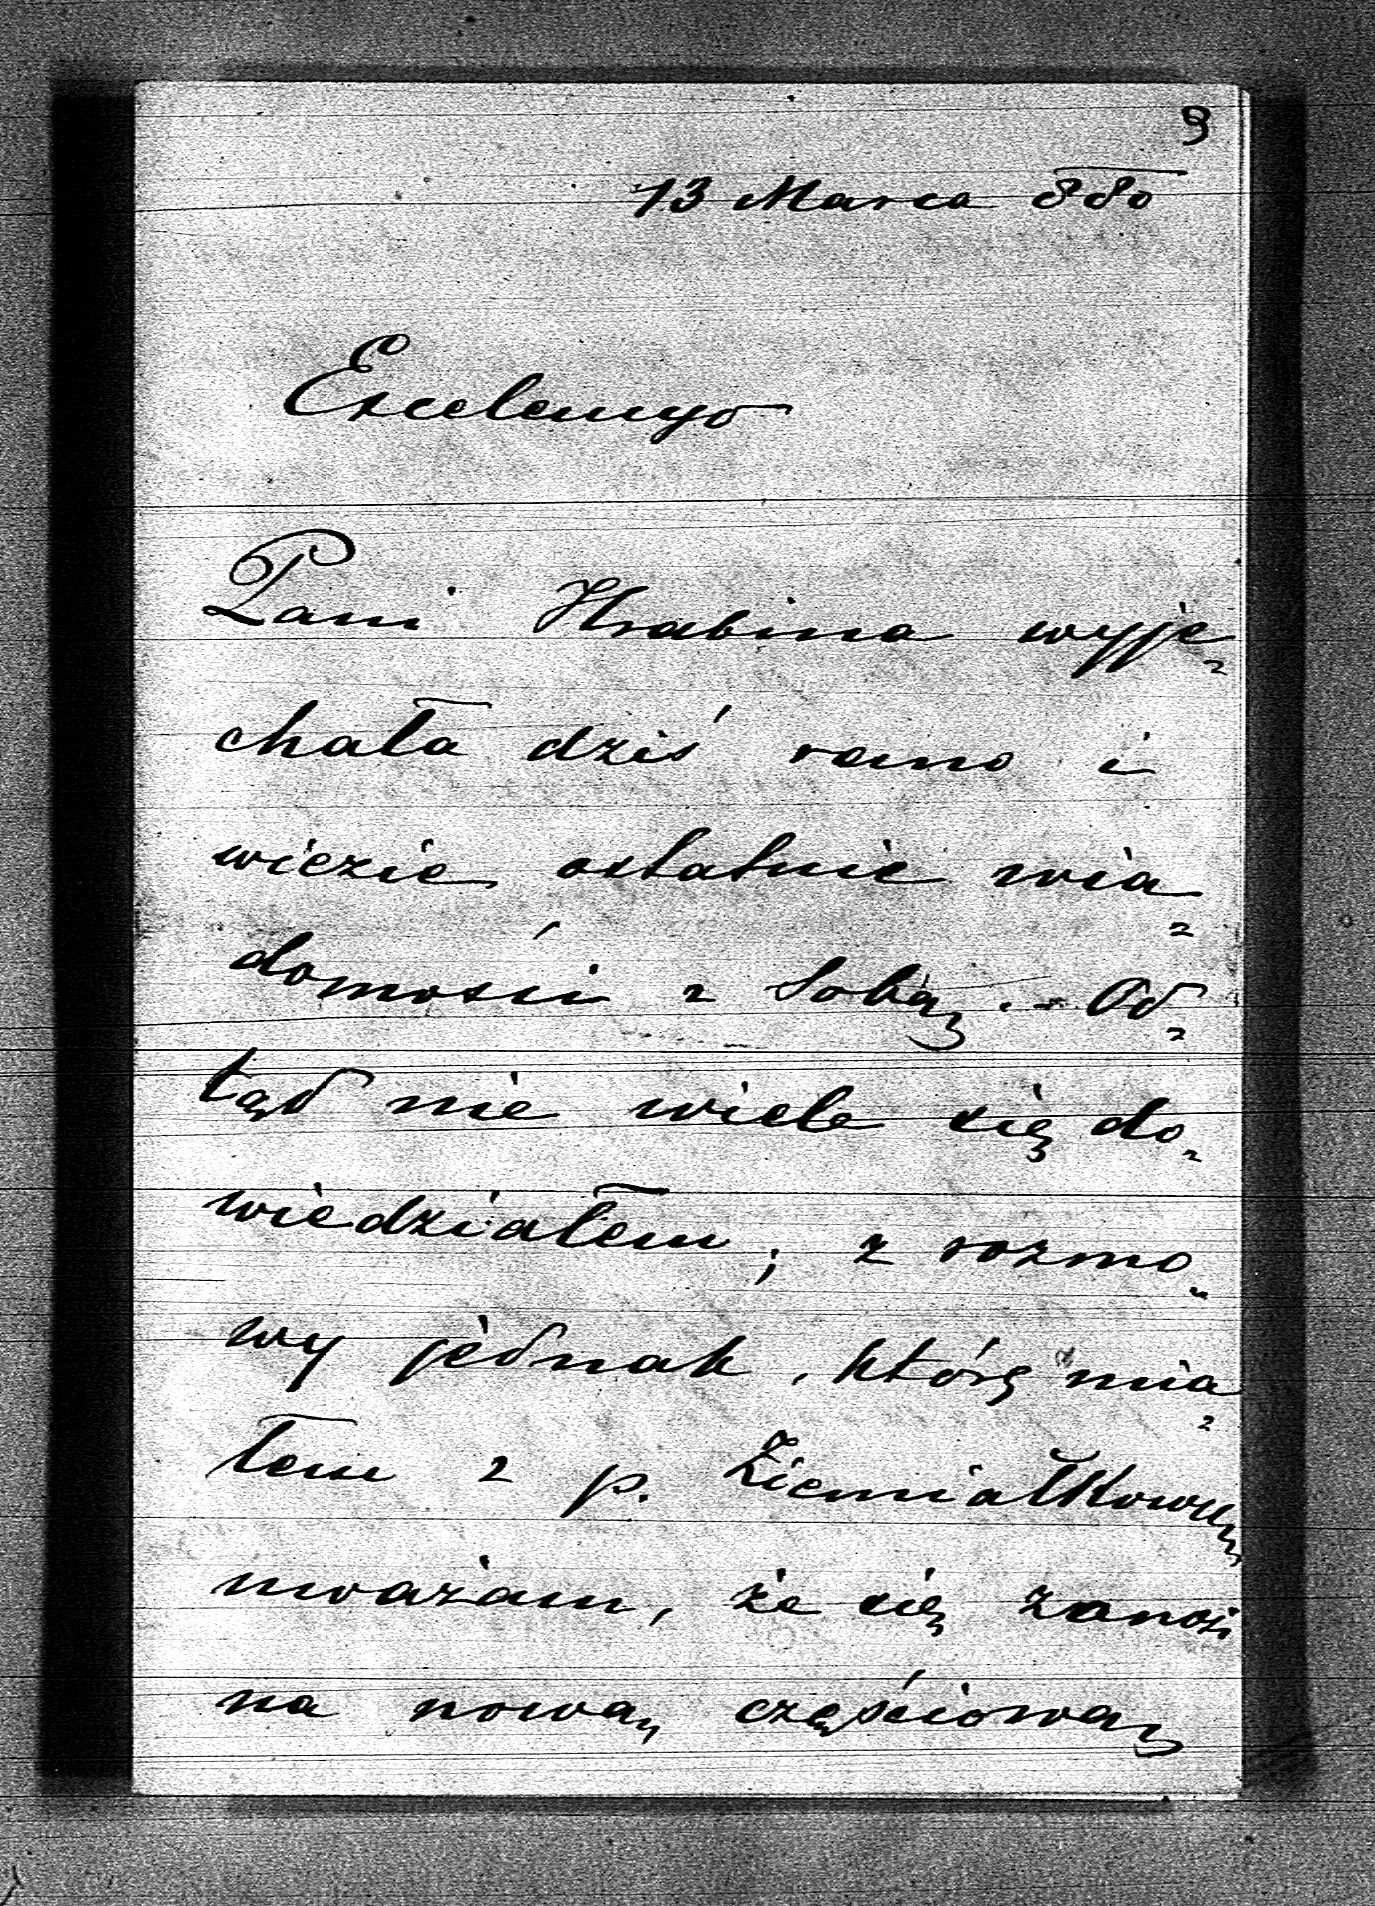 9
13 Marca 880
Excelencyo
Pani Hrabina wyje-
chała dziś rano i
wiezie ostatnie wia-
domości z sobą. - Od-
tąd nie wiele się do-
wiedziałem; z rozmo-
wy jednak, którę mia-
łem z p. Ziemiałkowym
uważam, że się zanosi
na nową częściową